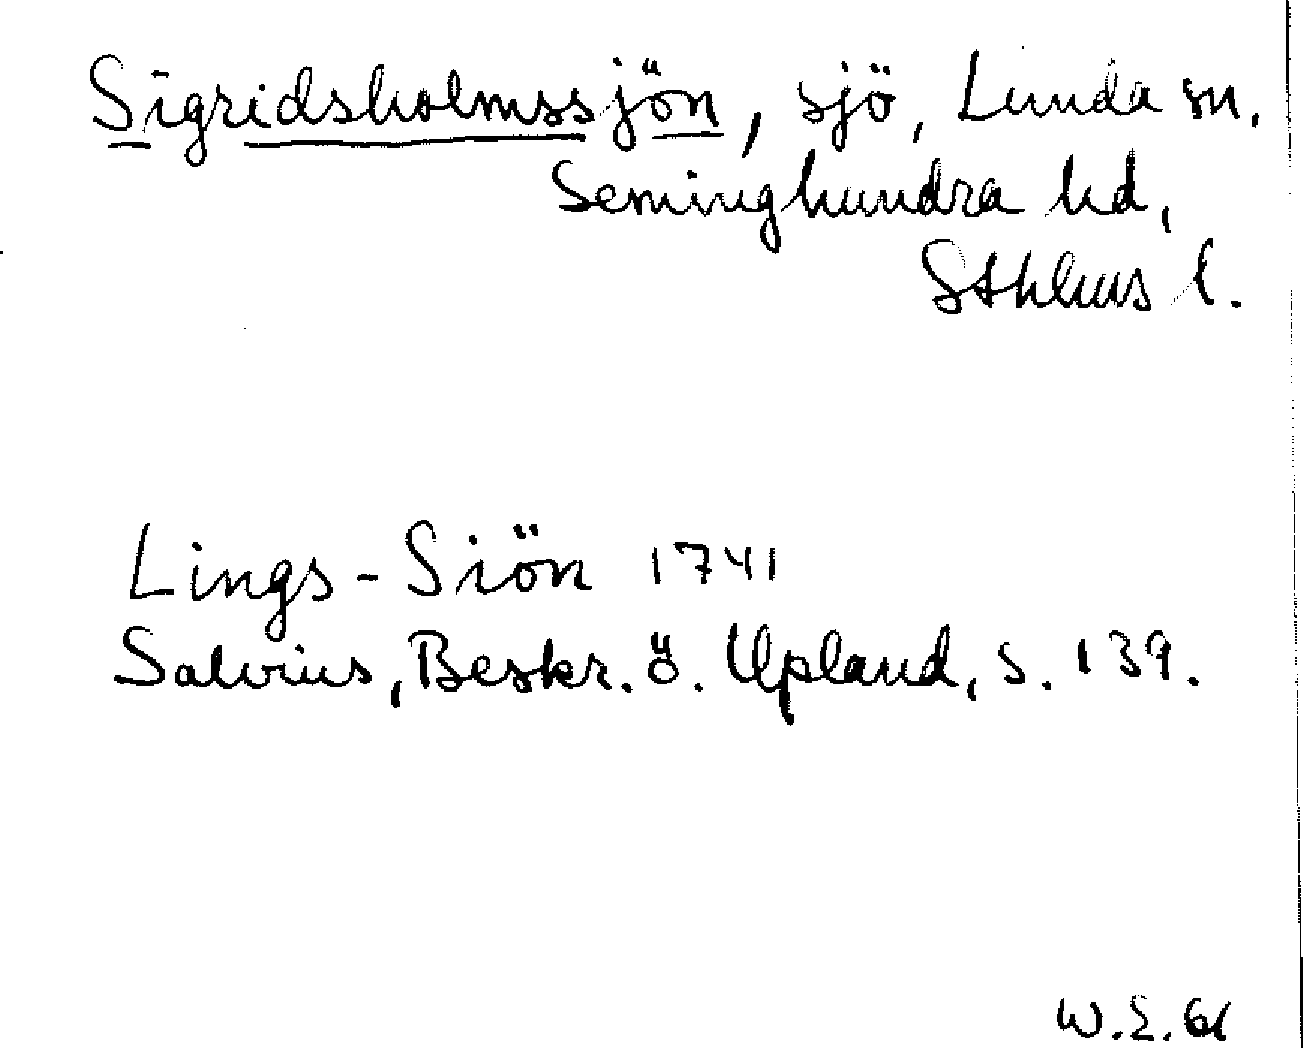 Sigridsholmssjön, sjö, Lunda sn,
Seminghundra hd,
Sthlms l.
Lings-Siön 1741
Salvius, Beskr. ö. Upland, s. 139.
W.E. 61